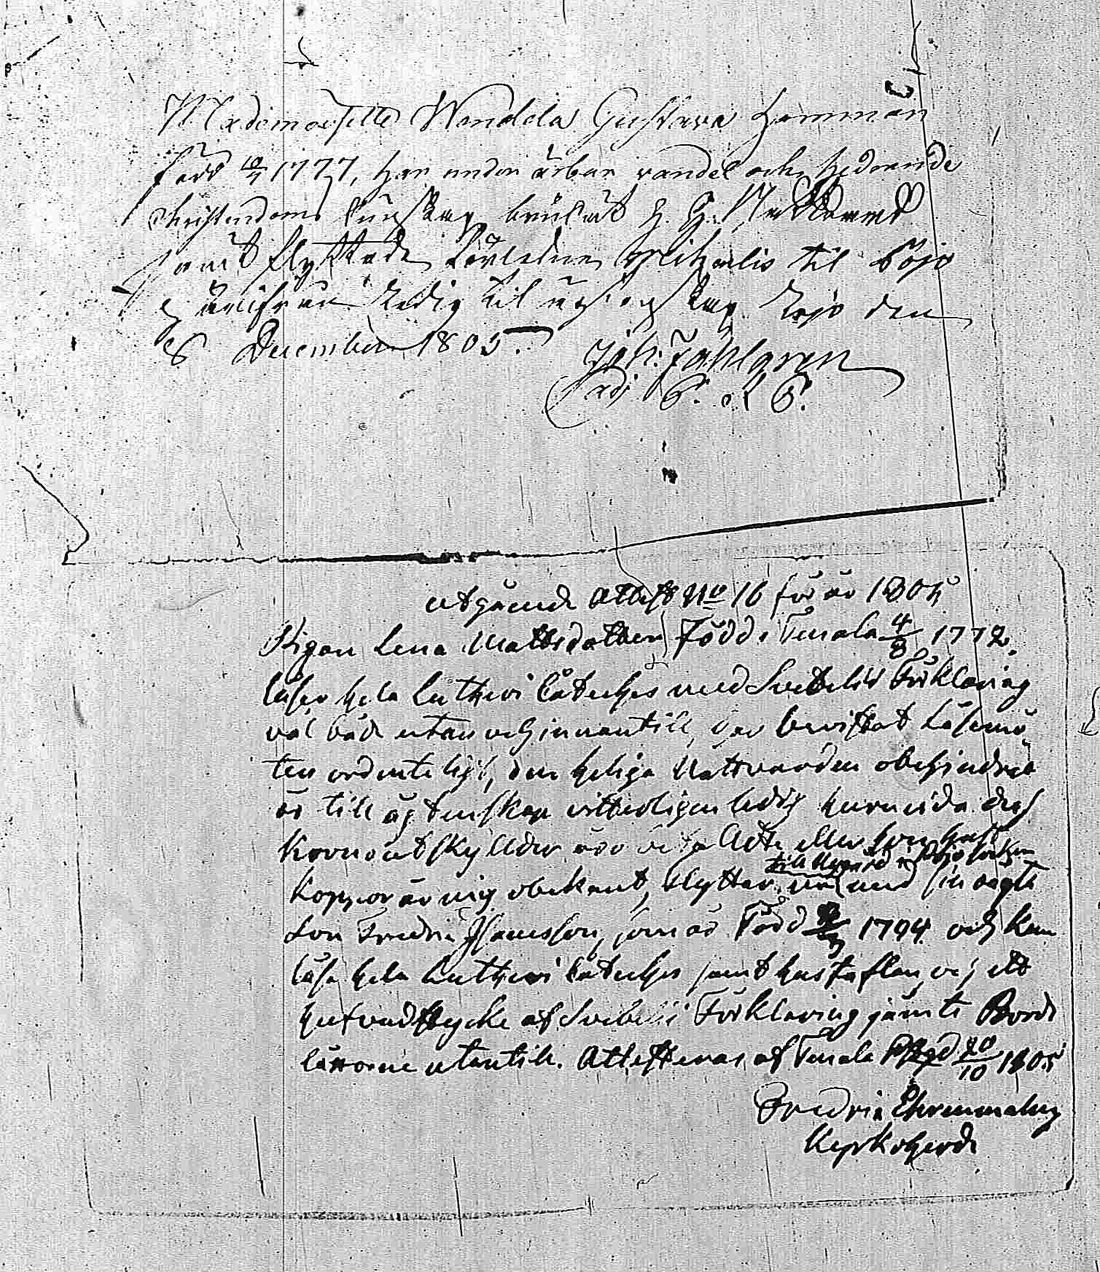 Mademoiselle Wendela Gustava Hemman
född 1777, har under ärbar vandel och hedrande
christendoms kunskap brukat H. H. Nattvard
samt flyttade Michaelis til Pojo
härifrån ledig til ägtenskap. den
8 December 1805.
Joh: Fahlgren
adj
utgåends Attest No 16 för år 1805
Pigan Lena Mattsdotter, Född i Tenala 4/8 1772.
läser hela Lutheri Cateches med Svebelii Förklaring
väl både utan och innantill, har bevistat Läsemö
ten ordenteligt, den heliga Nattvarden obehindrat
är till ägtenskap vitterligen ledig huruvida dess
Kronoutskylder äro eller
koppor är mig obekant, flyttar nu med sin oägta
Son Fredric som är Född 1794 och kan
läsa hela Lutheri Cateches samt hustaflan och ett
hufvudstycke af Svebelii Förklaring jämte Bords
läsorne utantill. Attesteras af Tenala Prgd 20/10 1805
Fredric Ehrenmalm
Kyrkoherde